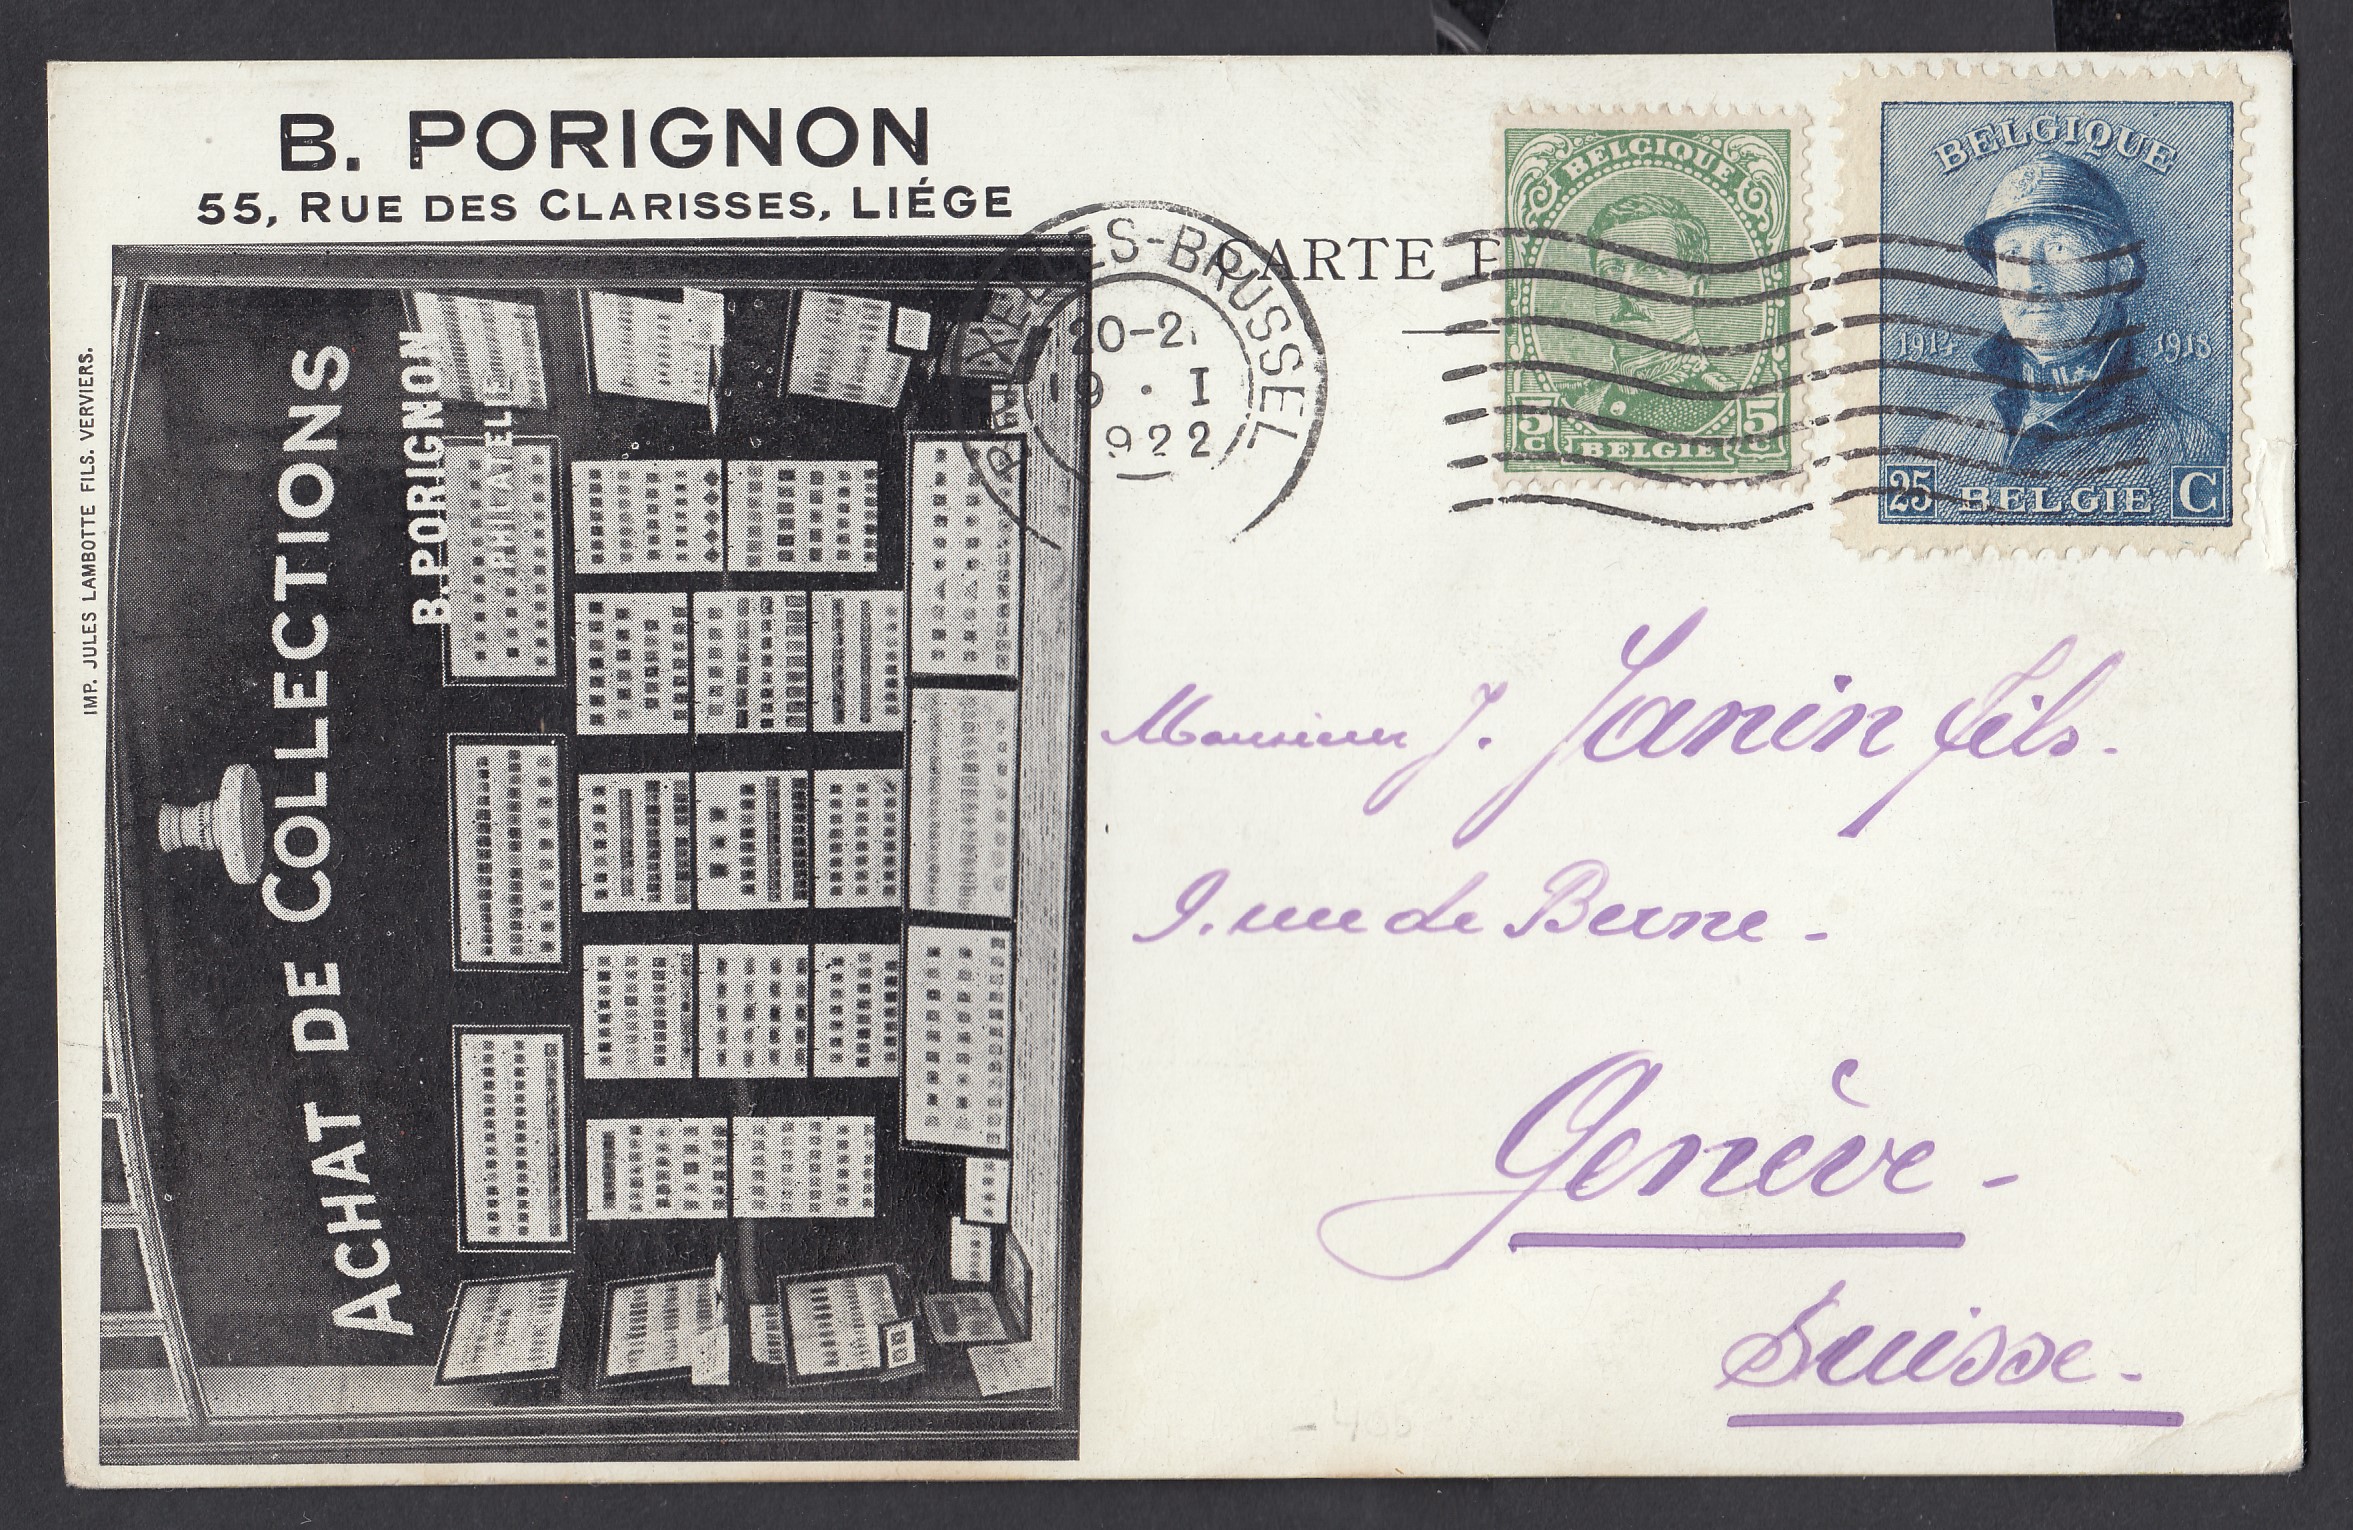 B. PORIGNON
55, RUE DES CLARISSES, LIÉGE
IMP. JULES LAMBOTTE FILS. VERVIERS.
ACHAT DE COLLECTIONS
B. PORIGNON
PHILATELIE
CARTE P
BRUXELLES-BRUSSEL
20-21
9 · I
1922
BELGIQUE
5 C BELGIË 5 C
BELGIQUE
1914 1918
25 BELGIE C
Monsieur J. Janin fils.
9. rue de Berne -
Genève -
Suisse -
- 400